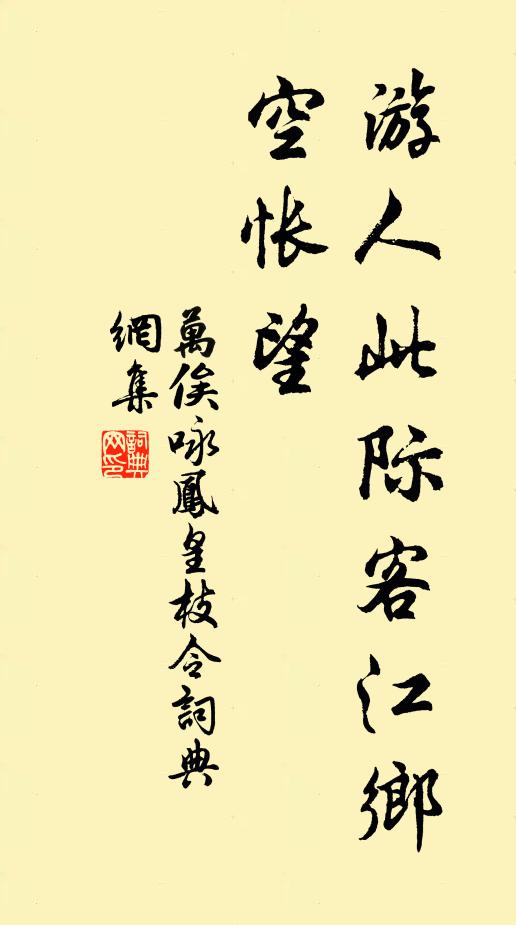 游人此际客江鄉
空怅望
萬俟咏鳳皇枝令詞典
網集
詞典网印